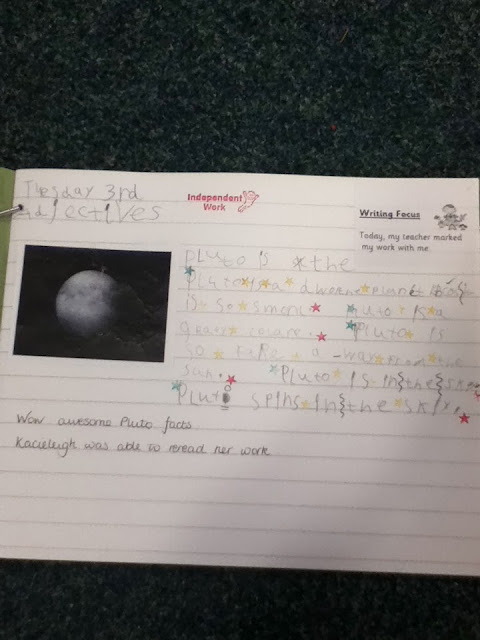 Tuesday 3rd
Adjectives
Independent
Work
Writing Focus
Today, my teacher marked
my work with me.
Pluto is the
Pluto is a dwarf planet
is so smorl Pluto is a
greay colare. Pluto is
so far a-way from the
san. Pluto is in the sky
Pluto spins in the sky.
Wow awesome Pluto facts.
Kacieleigh was able to reread her work